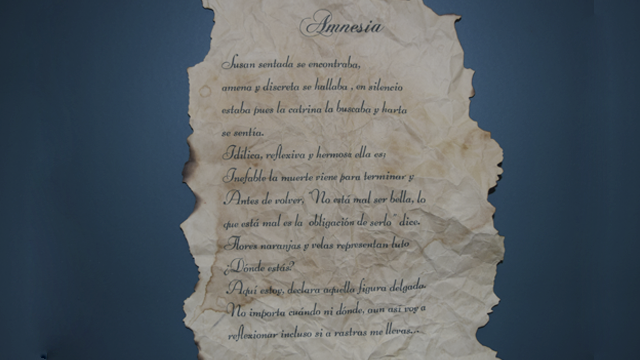 Amnesia
Susan sentada se encontraba,
amena y discreta se hallaba , en silencio
estaba pues la catrina la buscaba y harta
se sentía.
Idílica, reflexiva y hermosa ella es;
Inefable la muerte viene para terminar y
Antes de volver, "No está mal ser bella, lo
que está mal es la "obligación de serlo" dice.
Flores naranjas y velas representan luto
¿Dónde estás?
Aquí estoy, declara aquella figura delgada.
No importa cuándo ni dónde, aun así voy a
reflexionar incluso si a rastras me llevas....